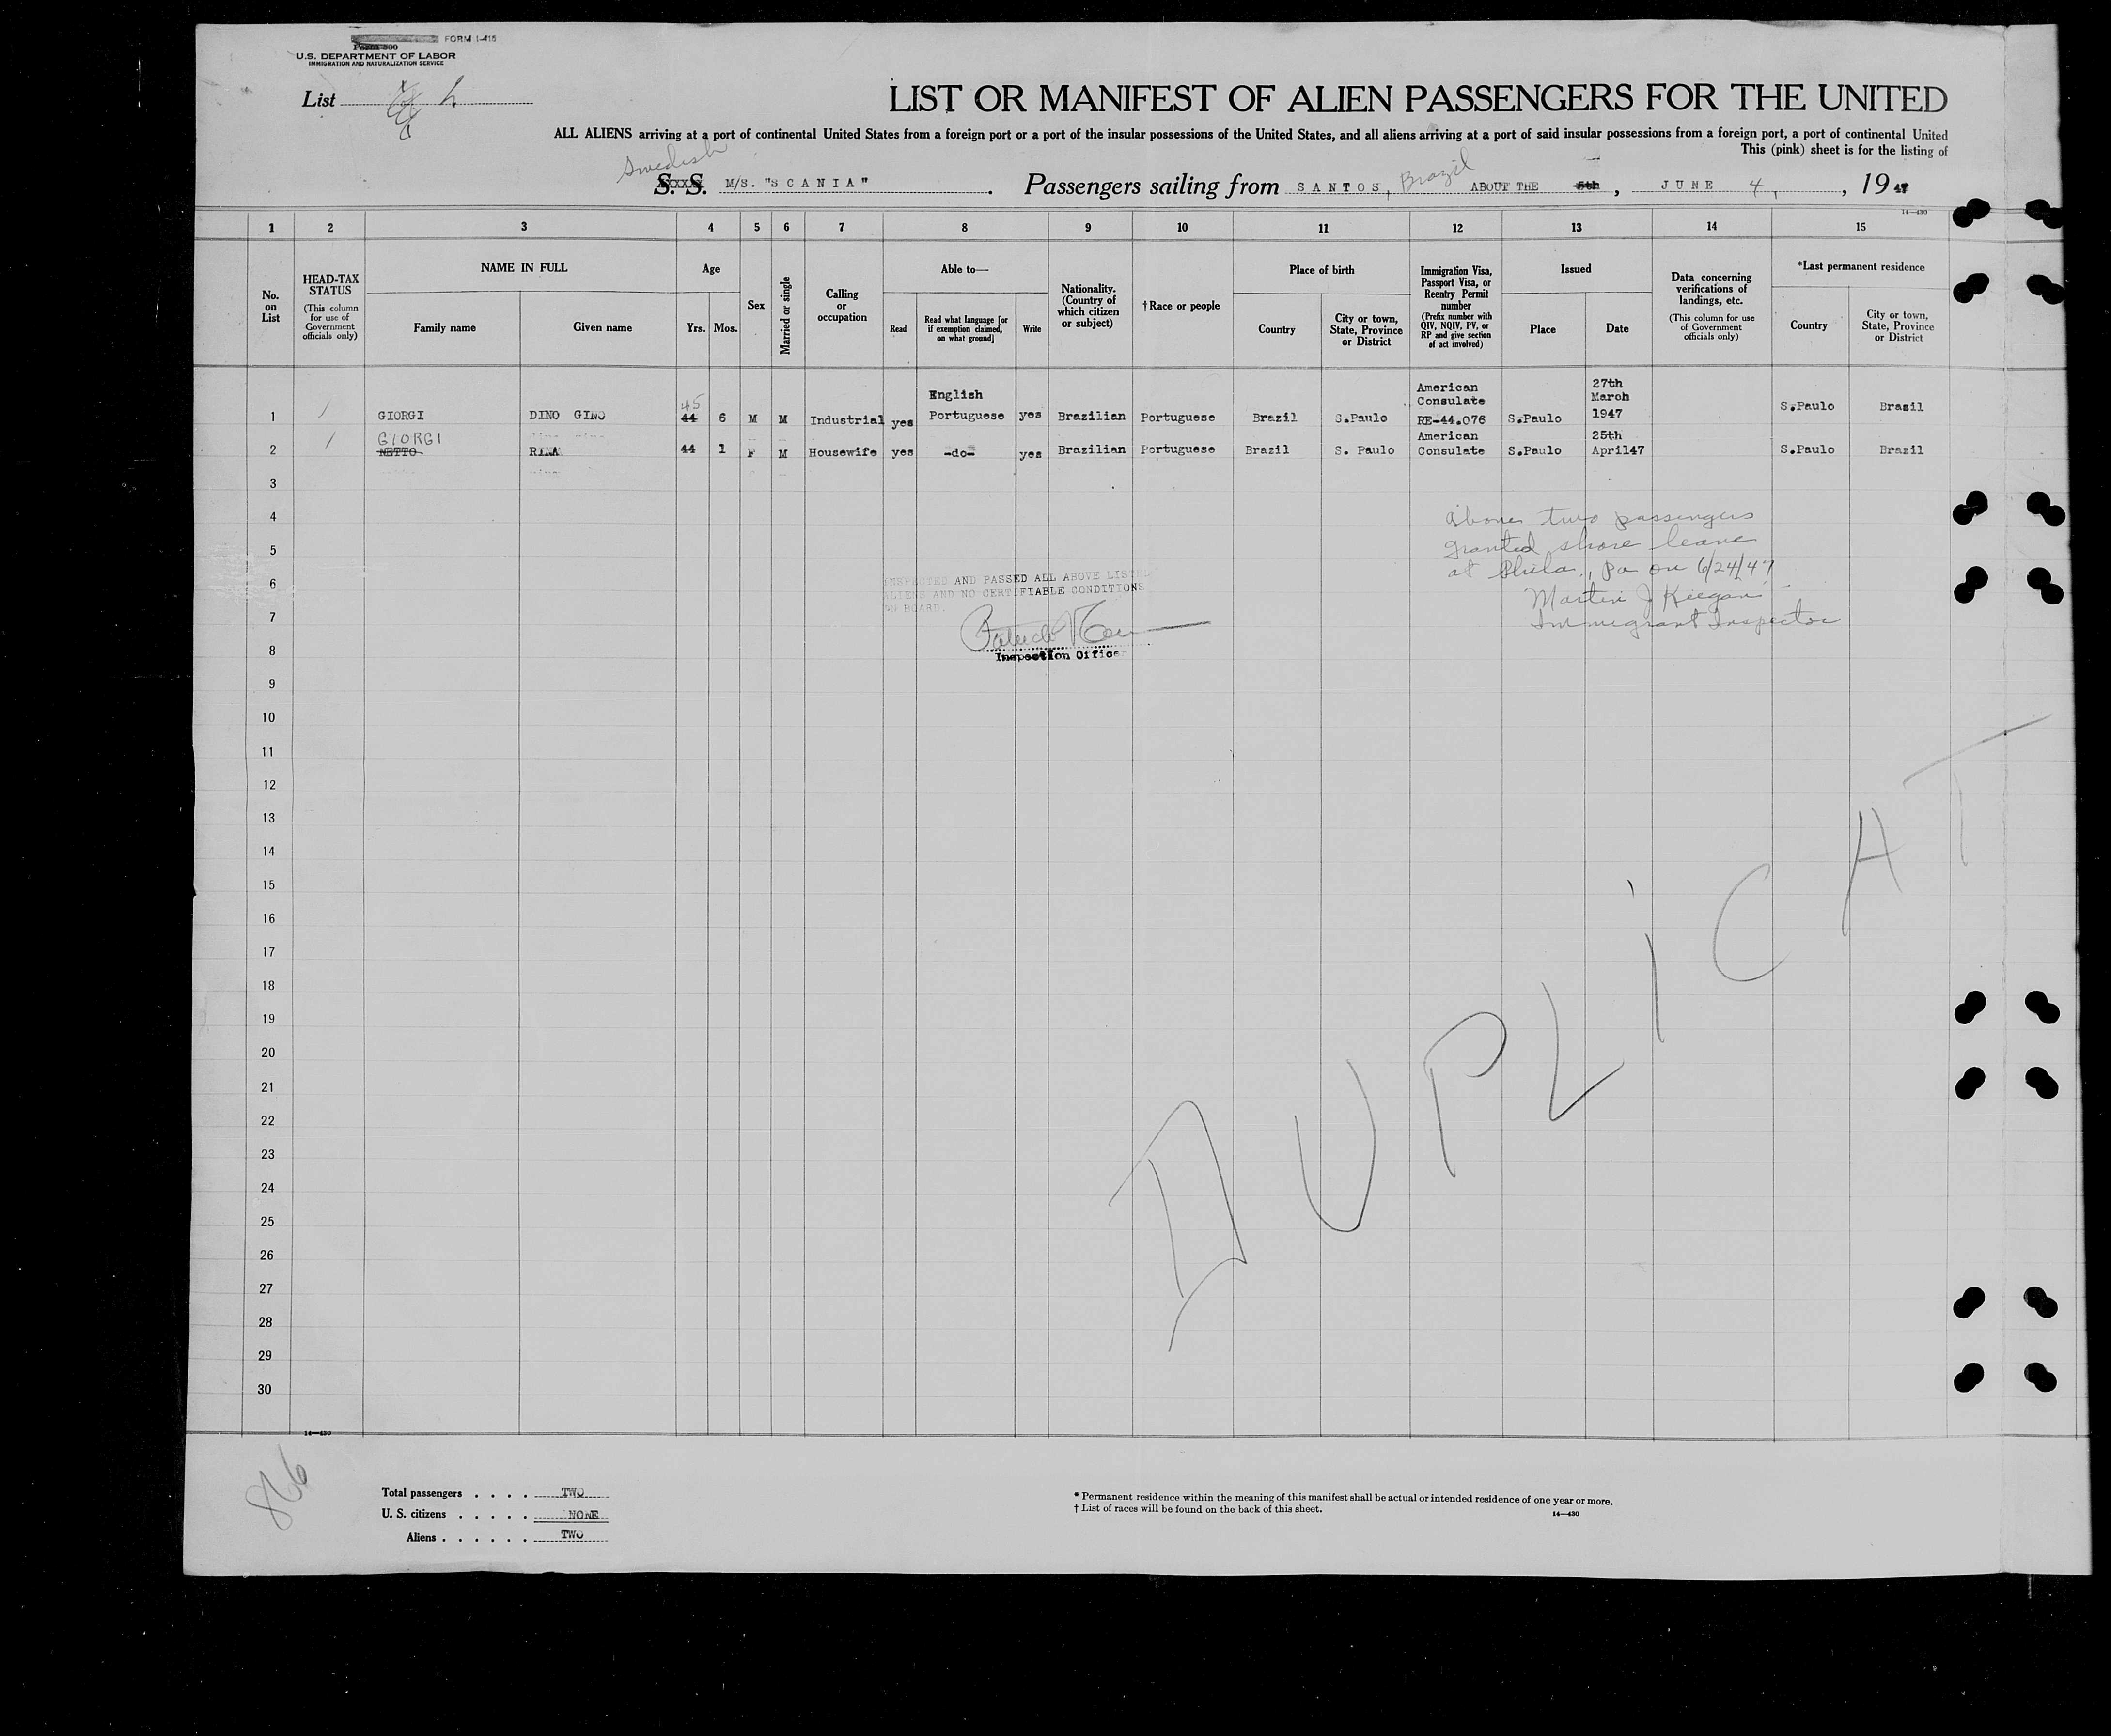 FORM I-415
Form 500
U.S. DEPARTMENT OF LABOR
IMMIGRATION AND NATURALIZATION SERVICE
List
LIST OR MANIFEST OF ALIEN PASSENGERS FOR THE UNITED
ALL ALIENS arriving at a port of continental United States from a foreign port or a port of the insular possessions of the United States, and all aliens arriving at a port of said insular possessions from a foreign port, a port of continental United
This (pink) sheet is for the listing of
Swedish
S. S. M/S. "SCANIA". Passengers sailing from SANTOS, Brazil ABOUT THE 5th, JUNE 4, , 1947
14—430
1 2 3 4 5 6 7 8 9 10 11 12 13 14 15
No. on List
HEAD-TAX STATUS (This column for use of Government officials only)
NAME IN FULL
Family name
Given name
Age
Yrs. Mos.
Sex
Married or single
Calling or occupation
Able to—
Read
Read what language [or if exemption claimed, on what ground]
Write
Nationality. (Country of which citizen or subject)
†Race or people
Place of birth
Country
City or town, State, Province or District
Immigration Visa, Passport Visa, or Reentry Permit number (Prefix number with QIV, NQIV, PV, or RP and give section of act involved)
Issued
Place
Date
Data concerning verifications of landings, etc. (This column for use of Government officials only)
*Last permanent residence
Country
City or town, State, Province or District
1 GIORGI DINO GINO 45 44 6 M M Industrial yes English Portuguese yes Brazilian Portuguese Brazil S.Paulo American Consulate RE-44.076 S.Paulo 27th March 1947 S.Paulo Brasil
2 GIORGI NETTO RINA 44 1 F M Housewife yes -do- yes Brazilian Portuguese Brazil S. Paulo American Consulate S.Paulo 25th April47 S.Paulo Brazil
3
4
5
6
7
8
9
10
11
12
13
14
15
16
17
18
19
20
21
22
23
24
25
26
27
28
29
30
Above two passengers
granted shore leave
at Phila., Pa on 6/24/47
Martin J Keegan
Immigrant Inspector
INSPECTED AND PASSED ALL ABOVE LISTED
ALIENS AND NO CERTIFIABLE CONDITIONS
ON BOARD.
Inspection Officer
DUPLICAT
14—430
866
Total passengers . . . . TWO
U. S. citizens . . . . . NONE
Aliens . . . . . . TWO
* Permanent residence within the meaning of this manifest shall be actual or intended residence of one year or more.
† List of races will be found on the back of this sheet.
14—430